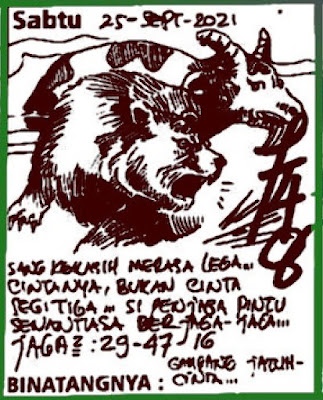 Sabtu 25-SEPT-2021
SANG KEKASIH MERASA LEGA...
CINTANYA, BUKAN CINTA
SEGITIGA... SI PENJAGA PINTU
SENANTIASA BERJAGA-JAGA...
JAGA2 : 29-47 16
GAMPANG JATUH-
BINATANGNYA : CINTA...